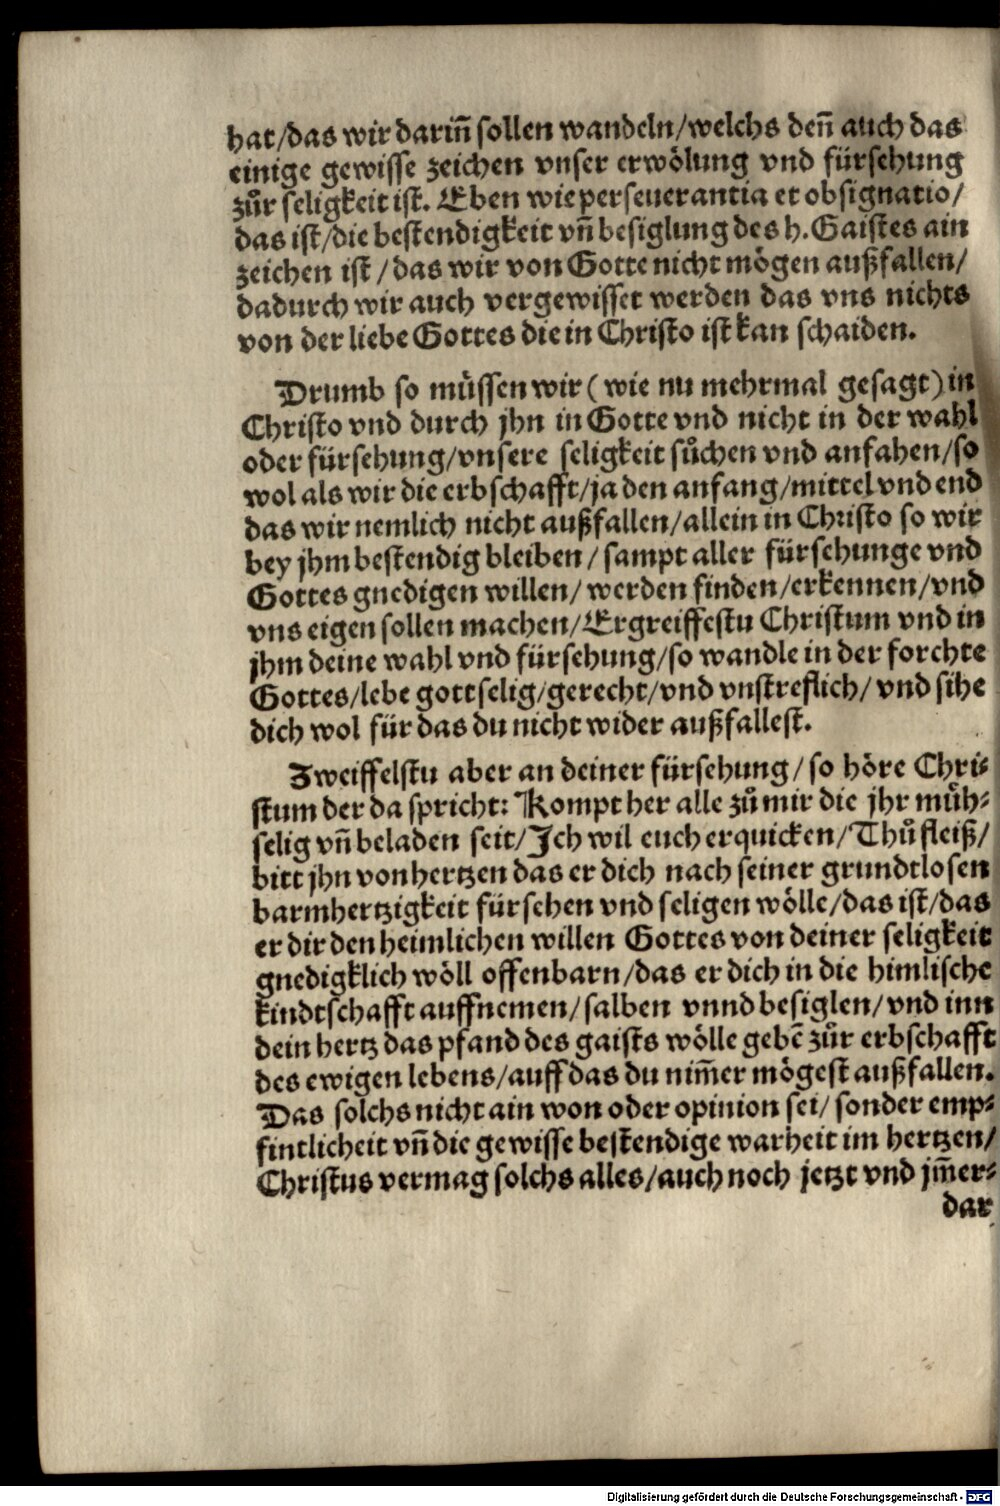 hat/das wir dariñ sollen wandeln/welchs deñ auch das
einige gewisse zeichen vnser erwölung vnd fürsehung
zůr seligkeit ist. Eben wie perseuerantia et obsignatio/
das ist/die bestendigkeit vñ besiglung des h. Gaistes ain
zeichen ist / das wir von Gotte nicht mögen außfallen/
dadurch wir auch vergewisset werden das vns nichts
von der liebe Gottes die in Christo ist kan schaiden.
Drumb so müssen wir ( wie nu mehrmal gesagt) in
Christo vnd durch jhn in Gotte vnd nicht in der wahl
oder fürsehung/vnsere seligkeit sůchen vnd anfahen/so
wol als wir die erbschafft/ja den anfang/mittel vnd end
das wir nemlich nicht außfallen/allein in Christo so wir
bey jhm bestendig bleiben / sampt aller fürsehunge vnd
Gottes gnedigen willen/ werden finden/erkennen/vnd
vns eigen sollen machen/Ergreiffestu Christum vnd in
jhm deine wahl vnd fürsehung/so wandle in der forchte
Gottes/lebe gottselig/gerecht/vnd vnstreflich/ vnd sihe
dich wol für das du nicht wider außfallest.
Zweiffelstu aber an deiner fürsehung/ so höre Chri⸗
stum der da spricht: Kompt her alle zů mir die jhr můh⸗
selig vñ beladen seit/Ich wil euch erquicken/Thů fleiß/
bitt jhn von hertzen das er dich nach seiner grundtlosen
barmhertzigkeit fürsehen vnd seligen wölle/das ist/das
er dir den heimlichen willen Gottes von deiner seligkeit
gnedigklich wöll offenbarn/das er dich in die himlische
kindtschafft auffnemen/salben vnnd besiglen/vnd inn
dein hertz das pfand des gaists wölle gebẽ zůr erbschafft
des ewigen lebens/auff das du nim̃er mögest außfallen.
Das solchs nicht ain won oder opinion sei/ sonder emp⸗
fintlicheit vñ die gewisse bestendige warheit im hertzen/
Christus vermag solchs alles/auch noch jetzt vnd jm̃er⸗
dar
Digitalisierung gefördert durch die Deutsche Forschungsgemeinschaft - DFG